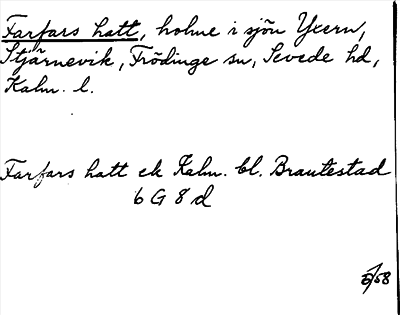 Farfars hatt, holme i sjön Yxern,
Stjärnevik, Frödinge sn, Sevede hd,
Kalm. l.
Farfars hatt ek Kalm. bl. Brantestad
6 G 8 d
/58